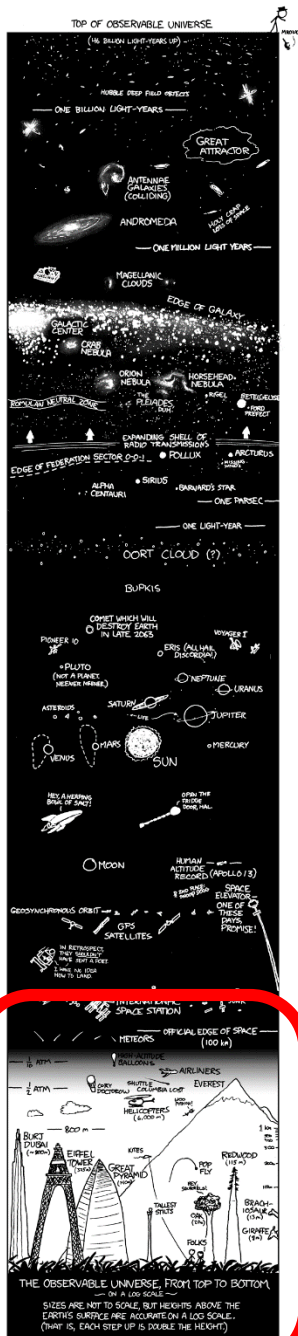 TOP OF OBSERVABLE UNIVERSE
(46 BILLION LIGHT-YEARS UP)
HUBBLE DEEP FIELD OBJECTS
ONE BILLION LIGHT-YEARS
GREAT
ATTRACTOR
ANTENNAE
GALAXIES
(COLLIDING)
HOLY CRAP
LOTS OF SPACE
ANDROMEDA
ONE MILLION LIGHT YEARS
MAGELLANIC
CLOUDS
EDGE OF GALAXY
GALACTIC
CENTER
CRAB
NEBULA
ORION
NEBULA
HORSEHEAD
NEBULA
ROMULAN NEUTRAL ZONE
THE
PLEIADES,
DUH.
RIGEL
BETELGEUSE
FORD
PREFECT
EXPANDING SHELL OF
RADIO TRANSMISSIONS
EDGE OF FEDERATION SECTOR 0-0-1
POLLUX
ARCTURUS
SIRIUS
ALPHA
CENTAURI
BARNARD'S STAR
ONE PARSEC
ONE LIGHT-YEAR
OORT CLOUD (?)
BUPKIS
COMET WHICH WILL
DESTROY EARTH
IN LATE 2063
PIONEER 10
ERIS (ALL HAIL
DISCORDIA!)
VOYAGER I
PLUTO
(NOT A PLANET,
NEENER NEENER)
NEPTUNE
URANUS
SATURN
ASTEROIDS
JUPITER
VENUS
MARS
SUN
MERCURY
HEY, A HEAPING
BOWL OF SALT!
OPEN THE
DOOR, HAL
MOON
HUMAN
ALTITUDE
RECORD (APOLLO 13)
SPACE
ELEVATOR—
ONE OF
THESE
DAYS,
PROMISE!
GEOSYNCHRONOUS ORBIT
GPS
SATELLITES
IN RETROSPECT,
THEY SHOULDN'T
HAVE SENT A POET.
I HAVE NO IDEA
HOW TO LAND.
INTERNATIONAL
SPACE STATION
METEORS
OFFICIAL EDGE OF SPACE
(100 km)
HIGH-ALTITUDE
BALLOONS
ATM
AIRLINERS
½ ATM
CORY
DOCTOROW
SHUTTLE
COLUMBIA LOST
EVEREST
HELICOPTERS
(6,000 m)
800 m
1 km
BURJ
DUBAI
EIFFEL
TOWER
(325m)
KITES
GREAT
PYRAMID
POP
FLY
REDWOOD
(115 m)
TALLEST
STILTS
OAK
BRACH-
IOSAUR
(13m)
GIRAFFE
FOLKS
THE OBSERVABLE UNIVERSE, FROM TOP TO BOTTOM
ON A LOG SCALE
SIZES ARE NOT TO SCALE, BUT HEIGHTS ABOVE THE
EARTH'S SURFACE ARE ACCURATE ON A LOG SCALE.
(THAT IS, EACH STEP UP IS DOUBLE THE HEIGHT.)